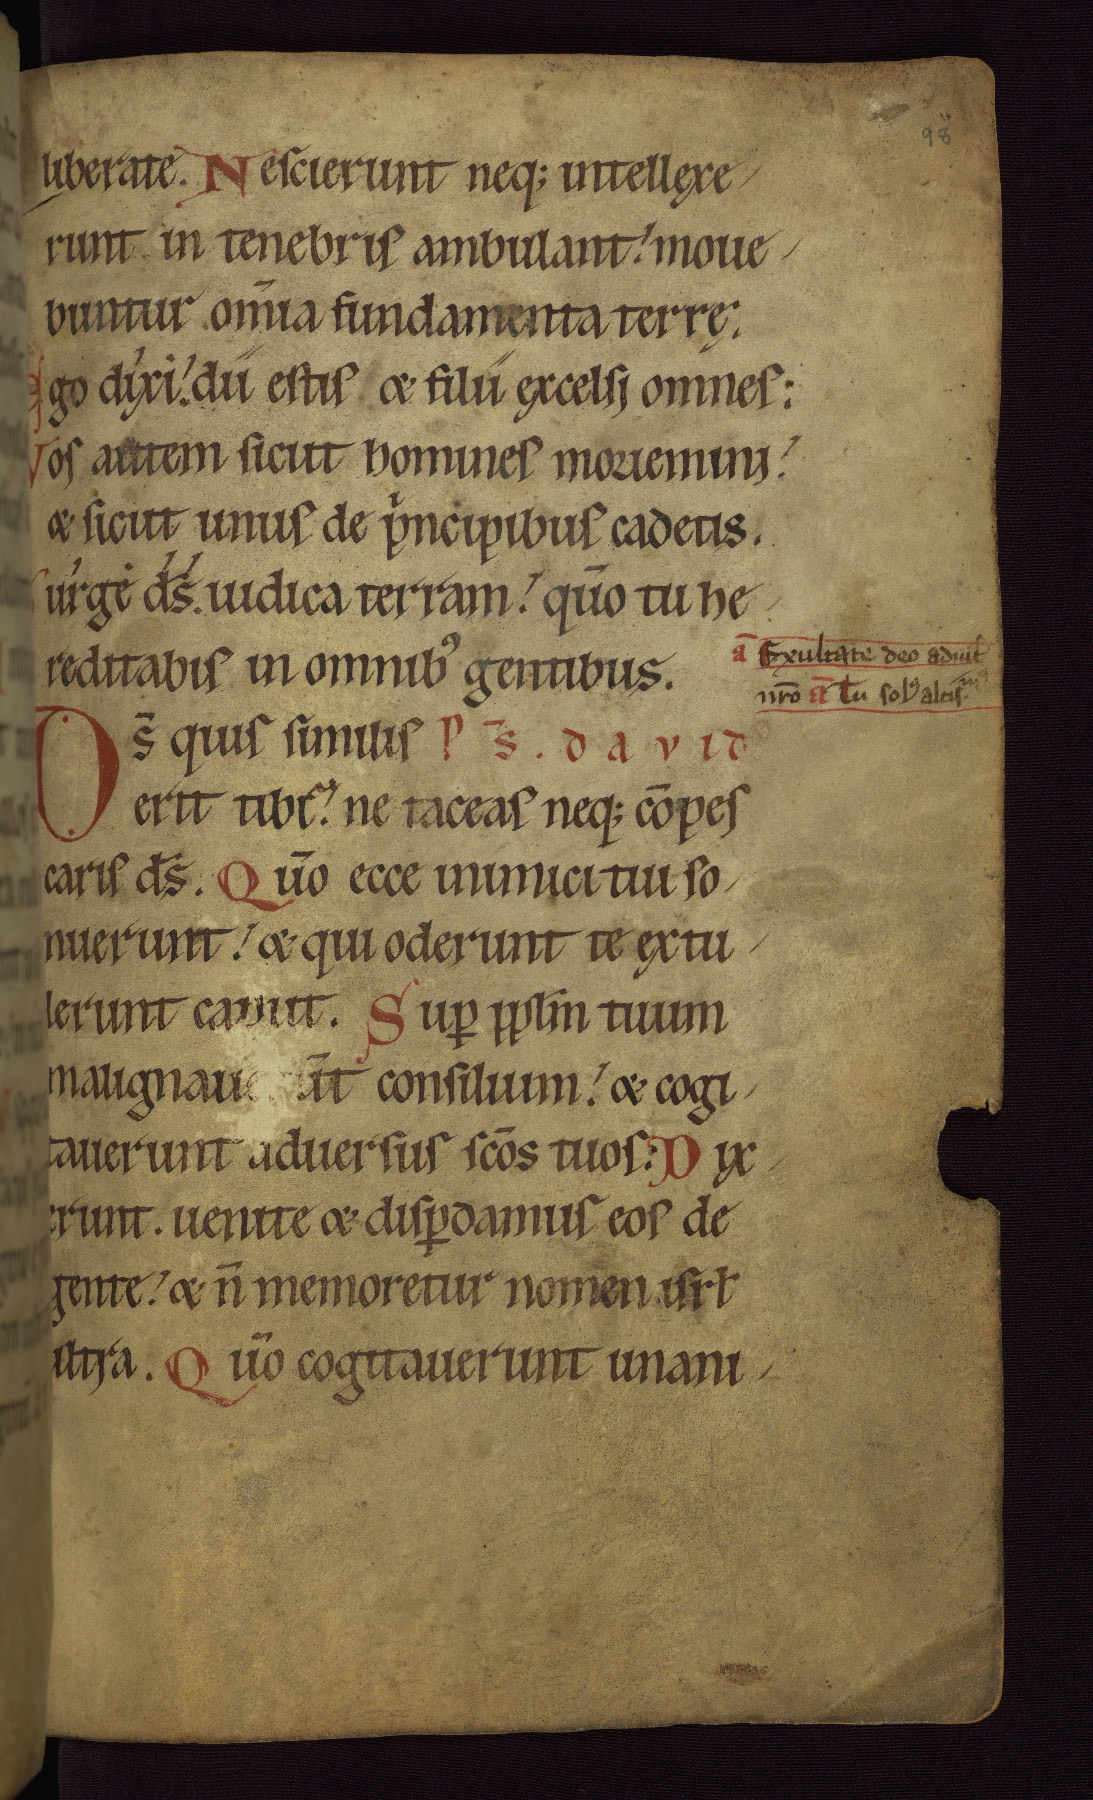 98
liberate. Nescierunt neq; intellexe
runt in tenebris ambulant! moue
buntur om̄ia fundamenta terrę.
Ego dixi! dii estis & filii excelsi omnes:
Vos autem sicut homines moriemini!
& sicut unus de pͥncipibus cadetis.
Surge dś. iudica terram! qūo tu he
reditabis in omnibꝰ gentibus.
a᷄ Exultate deo adiut̄
nr̄o a᷄ Tu solꝰ altis
Ds̄ quis similis ps̄. dauid
erit tibi! ne taceas neq; cōpes
caris dś. Qūo ecce inimici tui so
nuerunt! & qui oderunt te extu
lerunt caput. Suꝑ pplm̄ tuum
malignauerūt consilium! & cogi
tauerunt aduersus scōs tuos: Dix
erunt. uenite & disꝑdamus eos de
gente! & n̄ memoretur nomen isrł
ultra. Qūo cogitauerunt unani